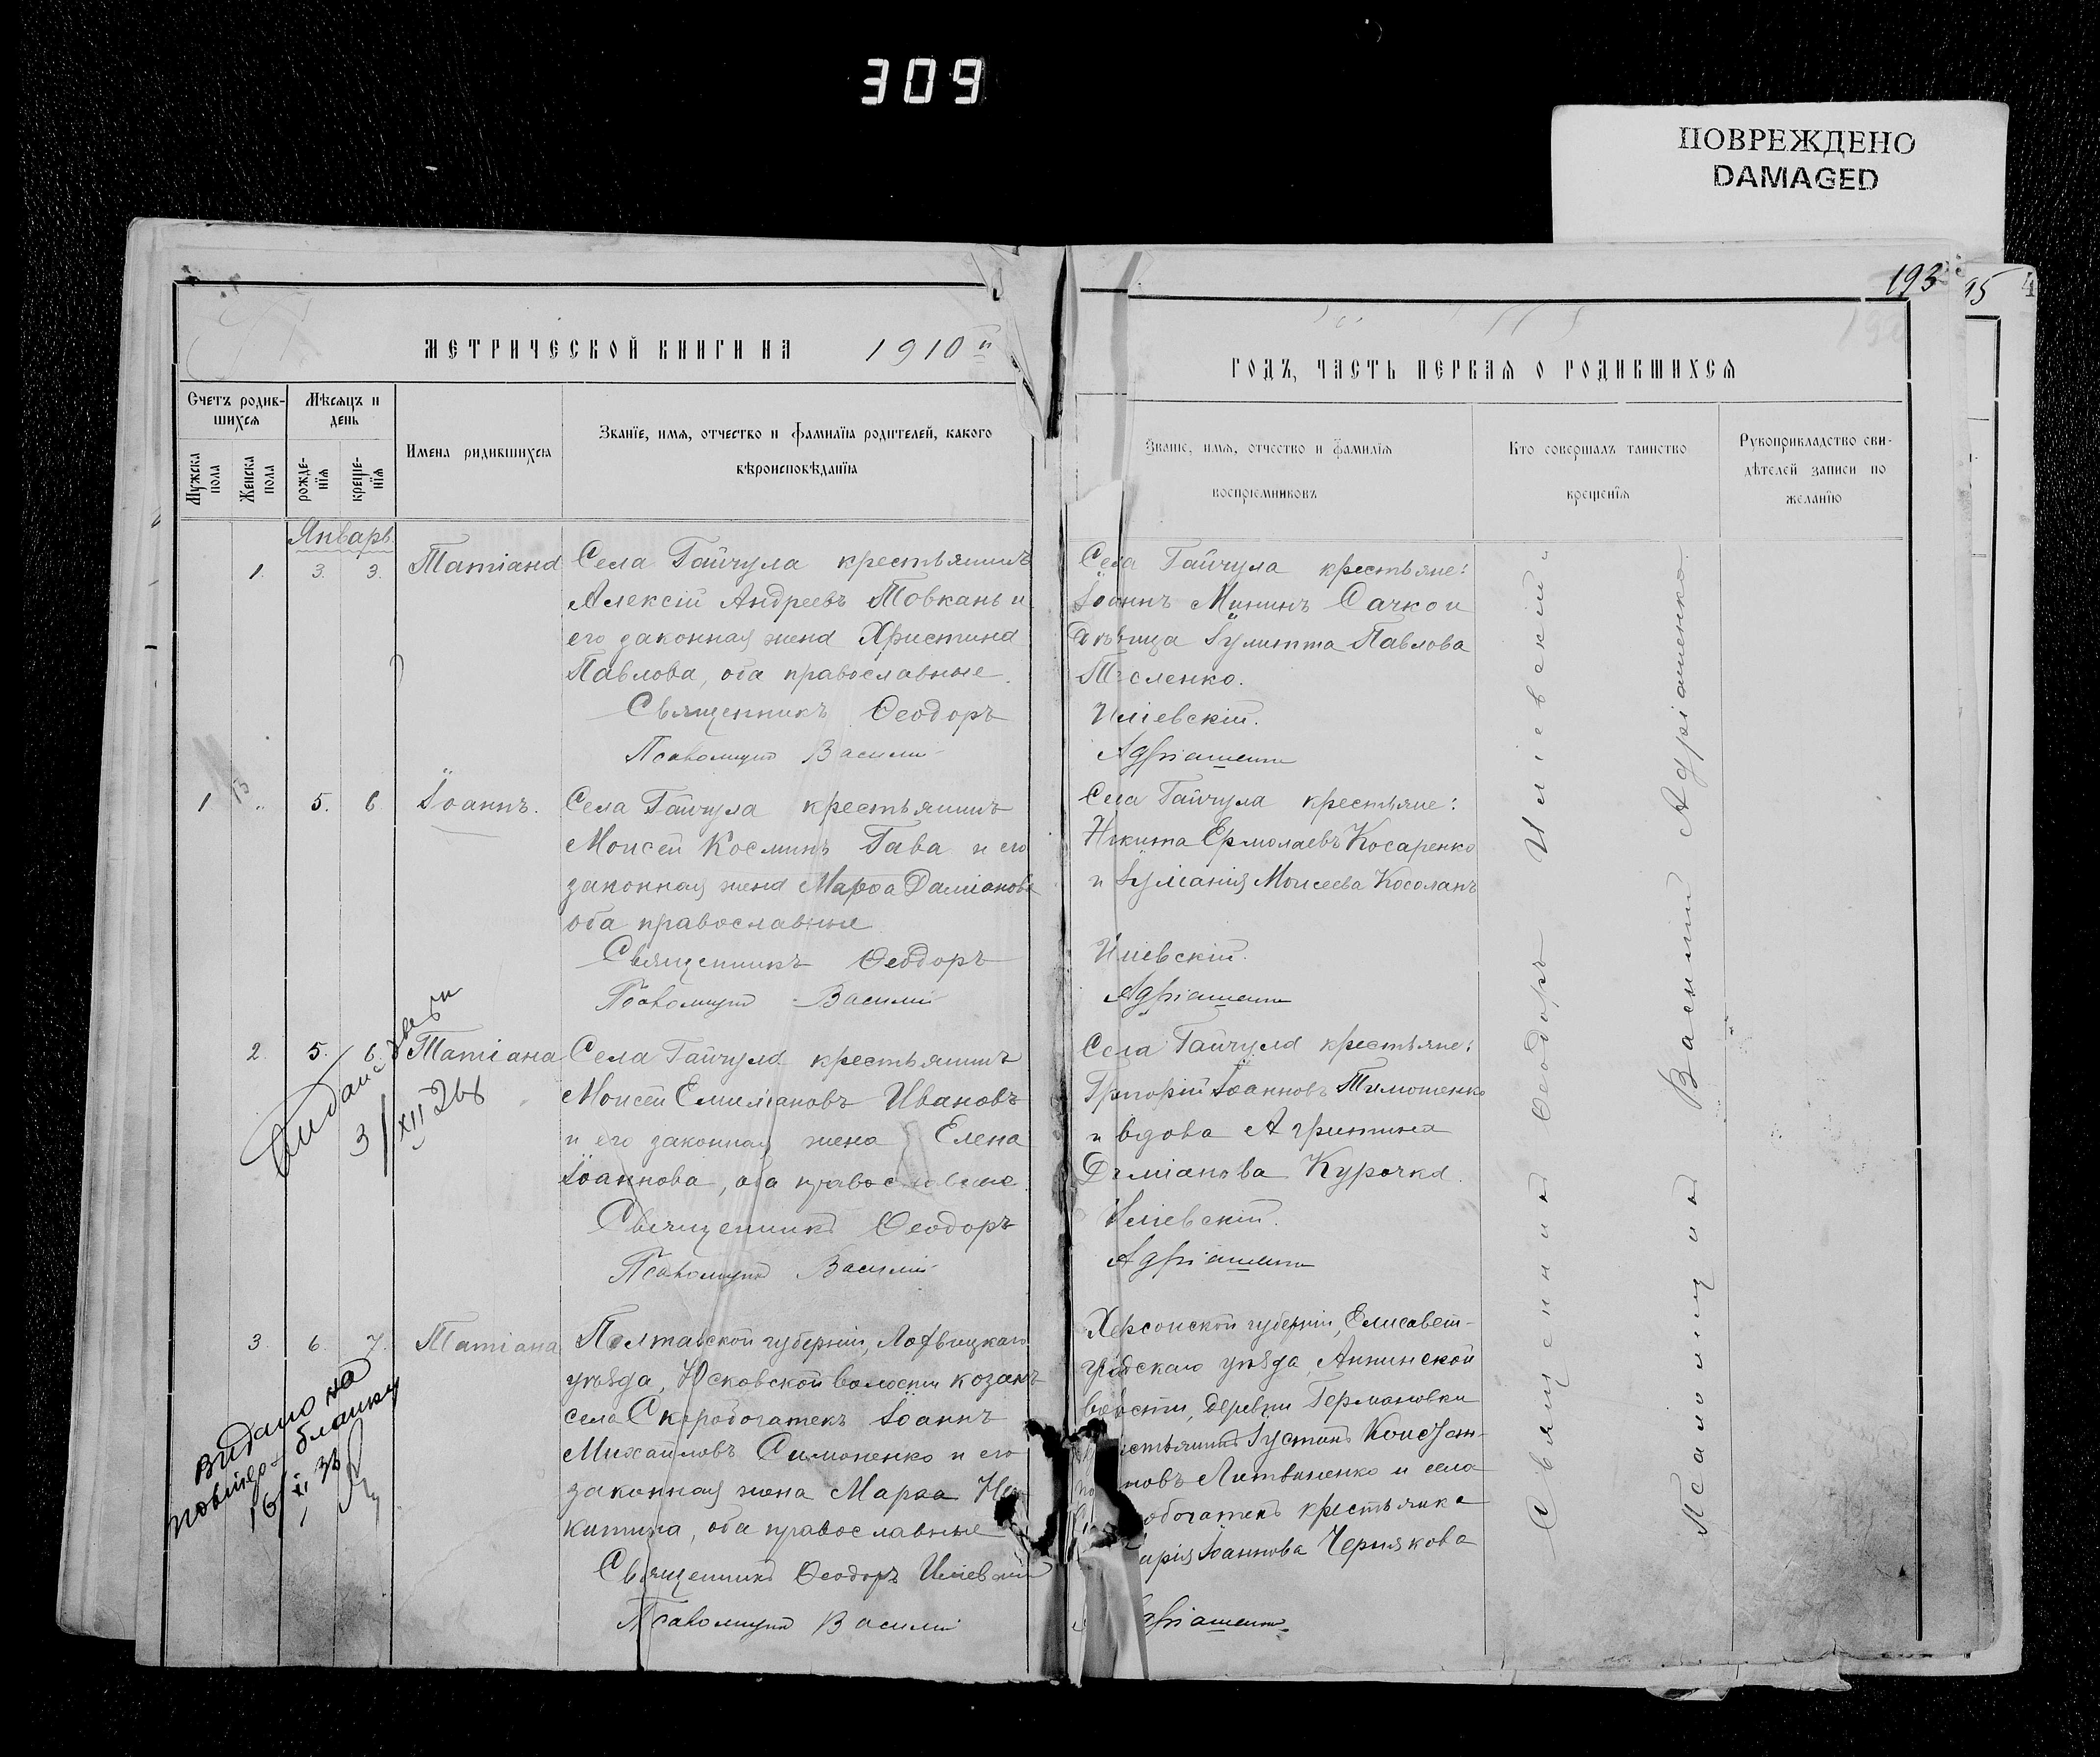 309
ПОВРЕЖДЕНО
DAMAGED
193
95
4
МЕТРИЧЕСКОЙ КНИГИ НА 1910й
ГОДЪ, ЧАСТЬ ПЕРВАЯ О РОДИВШИХСЯ
Счетъ родив-
шихся
Мѣсяцъ и
день
Мужеска
пола
Женска
пола
рожде-
нїя
креще-
нїя
Имена родившихся
Званїе, имя, отчество и фамилїя родителей, какого
вѣроисповѣданїя
Званїе, имя, отчество и фамилїя
воспрїемниковъ
Кто совершалъ таинство
крещенїя
Рукоприкладство сви-
дѣтелей записи по
желанїю
Январь
1. 3. 3. Татіана
Села Гайчула крестьянинъ
Алексій Андреевъ Товкань и
его законная жена Христина
Павлова, оба православные.
Священникъ Ѳеодоръ
Псаломщикъ Василій
Села Гайчула крестьяне:
Іоаннъ Мининъ Сачко и
дѣвица Іулитта Павлова
Тесленко.
Иліевскій.
Адріашенко
1 " 5. 6 Іоаннъ.
Села Гайчула крестьянинъ
Моисей Косминъ Гава и его
законная жена Марѳа Даміанова
оба православные
Священникъ Ѳеодоръ
Псаломщикъ Василій
Села Гайчула крестьяне:
Никита Ермолаевъ Косаренко
и Іуліанія Моисеева Косоланъ
Иліевскій.
Адріашенко
2. 5. 6. Татіана
3/XII 268
Села Гайчула крестьянинъ
Моисей Емиліановъ Ивановъ
и его законная жена Елена
Іоаннова, оба православные.
Священникъ Ѳеодоръ
Псаломщикъ Василій
Села Гайчула крестьяне:
Григорій Іоанновъ Тимошенко
и вдова Агриппина
Даміанова Курочка.
Иліевскій.
Адріашенко
3. 6. 7. Татіана
видано на
бланку
16/XI 38
Полтавской губерніи, Лохвицкаго
уѣзда, Юсковской волости козакъ
села Скоробогатекъ Іоаннъ
Михаиловъ Симоненко и его
законная жена Марѳа Ни-
китина, оба православные
Священникъ Ѳеодоръ Иліевскій
Псаломщикъ Василій
Херсонской губерніи, Елисавет-
градскаго уѣзда, Аннинской
волости, деревни Германовки
крестьянинъ Іустинъ Констан-
новъ Литвиненко и села
обогатекъ крестьянка
арія Іоаннова Чернякова
Адріашенко
Священникъ Ѳеодоръ Иліевскій
Псаломщикъ Василій Адріашенко.